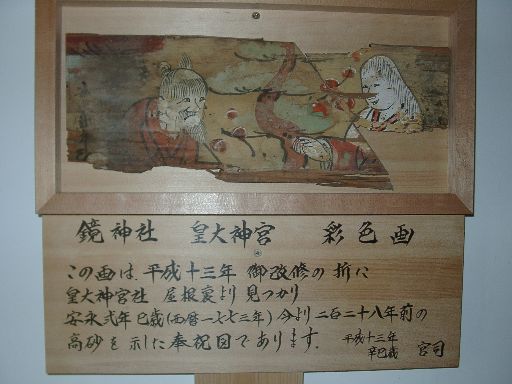 鏡神社 皇大神宮 彩色画
この画は、平成十三年 御改修の折に
皇大神宮社 屋根裏より見つかり
安永弐年巳歳(西暦一七七三年)今より二百二十八年前の
高砂を示した奉祝図であります。 平成十三年
辛巳歳 宮司